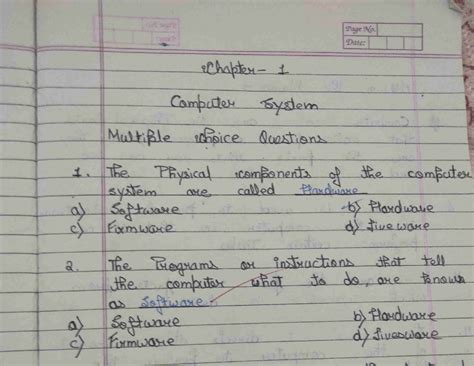 Page No.
Date:
Chapter - 1
Computer System
Multiple choice Questions
1. The Physical components of the computer
system are called Hardware
a) Software b) Hardware
c) Firmware d) Liveware
2. The Programs or instructions that tell
the computer what to do, are known
as Software.
a) Software b) Hardware
c) Firmware d) Livesware